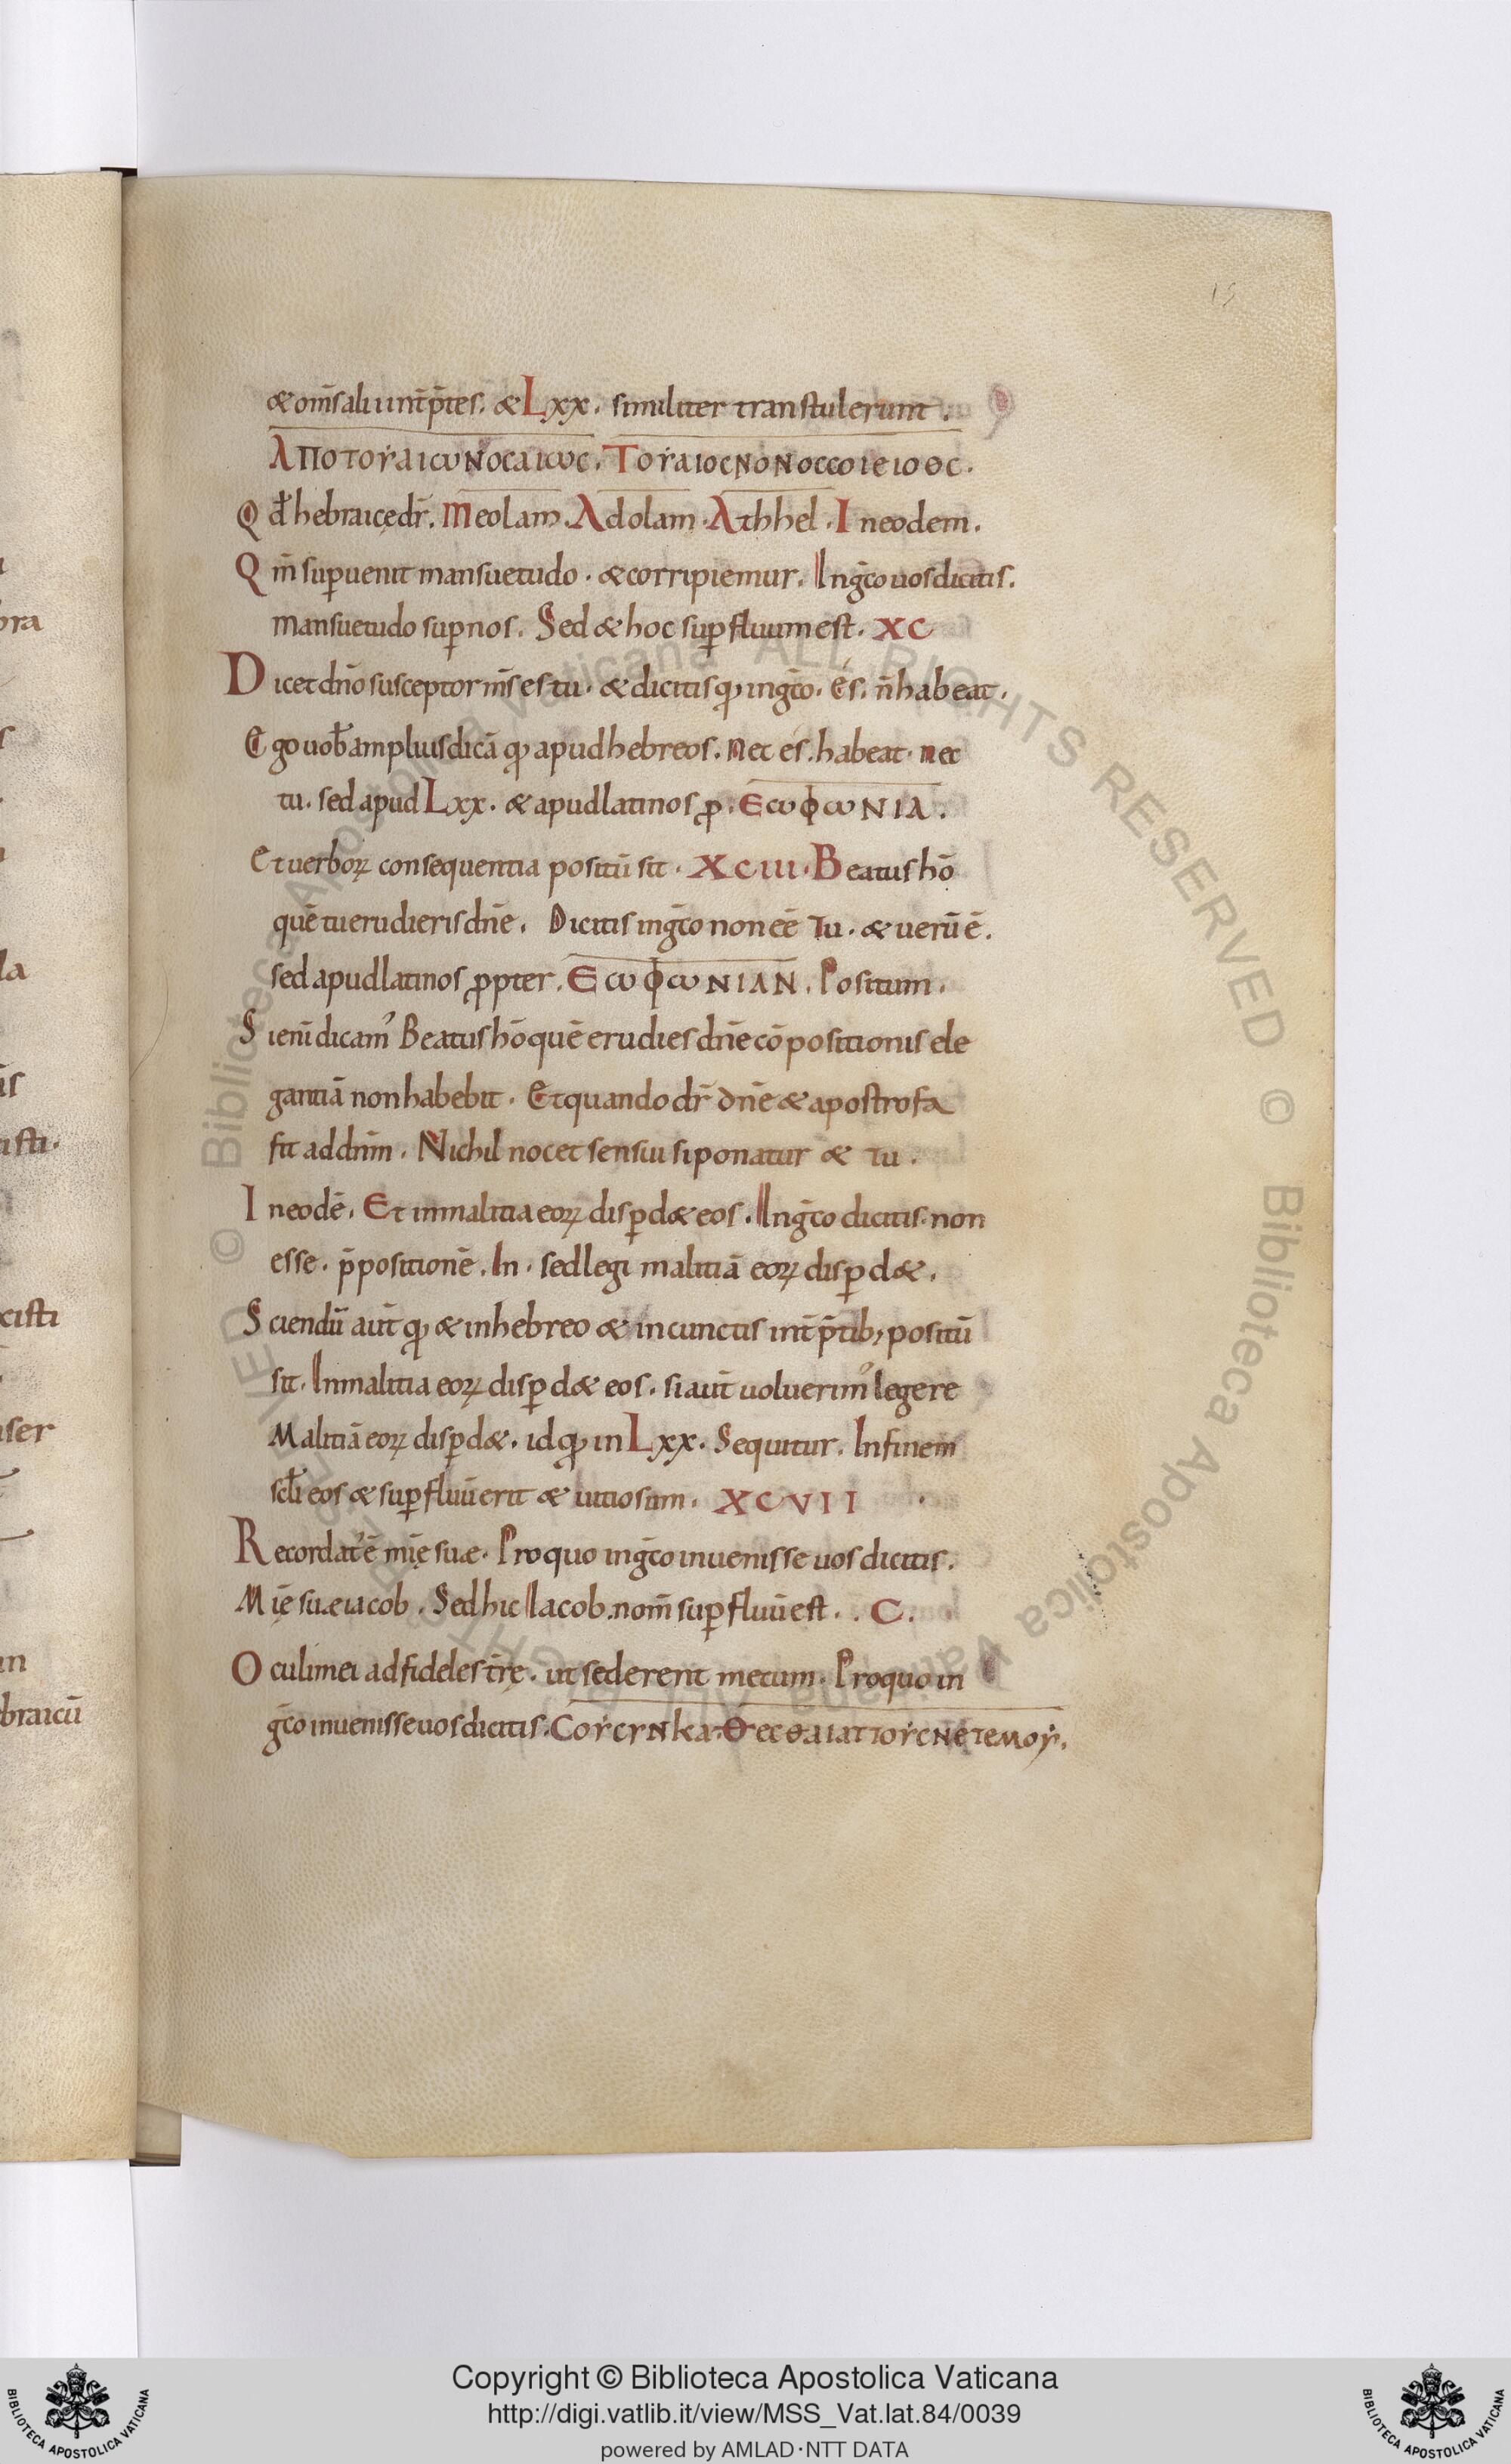 15
& om̄s alii int̄p̄tes. & Lxx. similiter transtulerunt.
ΑΠΟΤΟΥΑΙωΝΟCΑΙωC. ΤΟΥΑΙΟCΝΟΝΟCCΟΙΕΙΟΘC.
Qđ hebraicę dr̄. Meolam. Adolam. Athhel. In eodem.
Qm̄ sup̱uenit mansuetudo. & corripiemur. In ḡco uos dicitis.
mansuetudo sup̱ nos. Sed & hoc sup̱fluum est. XC
Dicet dn̄o susceptor m̄s es tu. & dicitis qđ in ḡco. és. n̄ habeat.
Ego uob̄ amplius dicā qđ apud hebreos. nec és. habeat. nec
tu. sed apud Lxx. & apud latinos ꝓ. ЄωΦωΝΙΑ.
Et uerboꝝ consequentia positū sit. XCIII. Beatus hō
quē tu erudieris dn̄e. Dicitis in ḡco non eē Tu. & uerū ē.
sed apud latinos ꝓpter. ЄωΦωΝΙΑΝ. Positum.
Si eni dicam᾽ Beatus hō quē erudies dn̄e cōpositionis ele
gantiā non habebit. Et quando dr̄ dn̄e & apostrofa
fit ad dnm̄. Nichil nocet sensui si ponatur & Tu.
In eodē. Et in malitia eoꝝ disp̱d& eos. In ḡco dicitis non
esse. p̄positionē. In. sed legi malitiā eoꝝ disp̱d&.
Sciendū aut̄ qđ & in hebreo & in cunctis int̄p̄tib; positū
sit. In malitia eoꝝ disp̱d& eos. si aut̄ uoluerim᾽ legere
Malitiā eoꝝ disp̱d&. id qđ in Lxx. Sequitur. In finem
scl̄i eos & sup̱fluū erit & uitiosum. XCVII
Recordat᾽ ē mīę suæ. Pro quo in ḡco inuenisse uos dicitis.
Mīę suæ iacob. Sed hic Iacob. nom̄ sup̱fluū est.. C.
Oculi mei ad fideles tr̄ę. ut sederent mecum. Pro quo in
ḡco inuenisse uos dicitis. CΟΥCΥΝΚΑ.ΘΕCΘΑΙΑΤΤΟΥCΝΕΤΕΜΟΥ.
ra
la
is
isti.
cisti
ser
in
braicū
© Biblioteca Apostolica Vaticana ALL RIGHTS RESERVED © Biblioteca Apostolica Vaticana ALL RIGHTS RESERVED
BIBLIOTECA APOSTOLICA VATICANA
Copyright © Biblioteca Apostolica Vaticana
http://digi.vatlib.it/view/MSS_Vat.lat.84/0039
powered by AMLAD·NTT DATA
BIBLIOTECA APOSTOLICA VATICANA